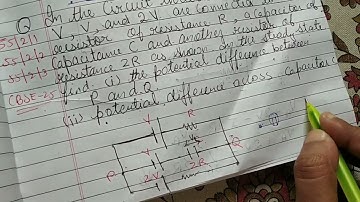 Q In the circuit
55/2/1 V, V, and 2V are connected in
55/2/2 resistor of resistance R, a capacitor of
55/2/3 Capacitance C and another resistor of
resistance 2R as shown in the steady state
CBSE-25 find. (i) the potential difference between
P and Q.
(ii) potential difference across capacitor C
V R
V Q
P 2V 2R